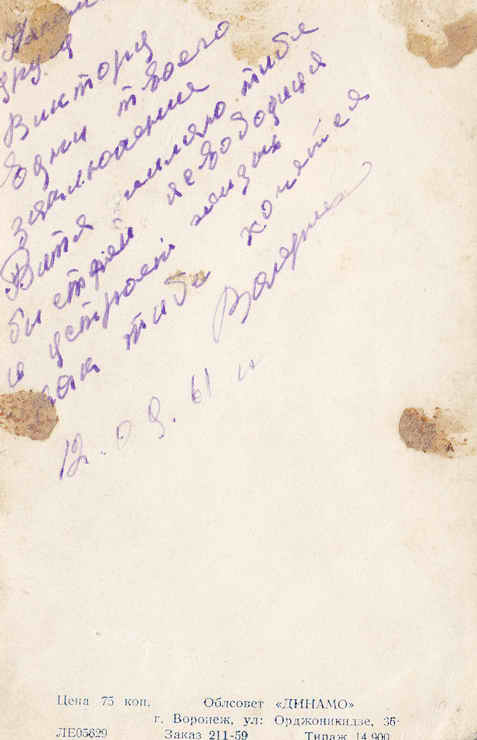 другу
Виктору
в дни твоего
заключения
Витя желаю тибе
быстрей освободица
и устроеть жизнь
как тибе хочятся
Валерий
12.09.61 г
Цена 75 коп. Облсовет «ДИНАМО»
г. Воронеж, ул: Орджоникидзе, 36-
ЛЕ05629 Заказ 211-59 Тираж 14 900